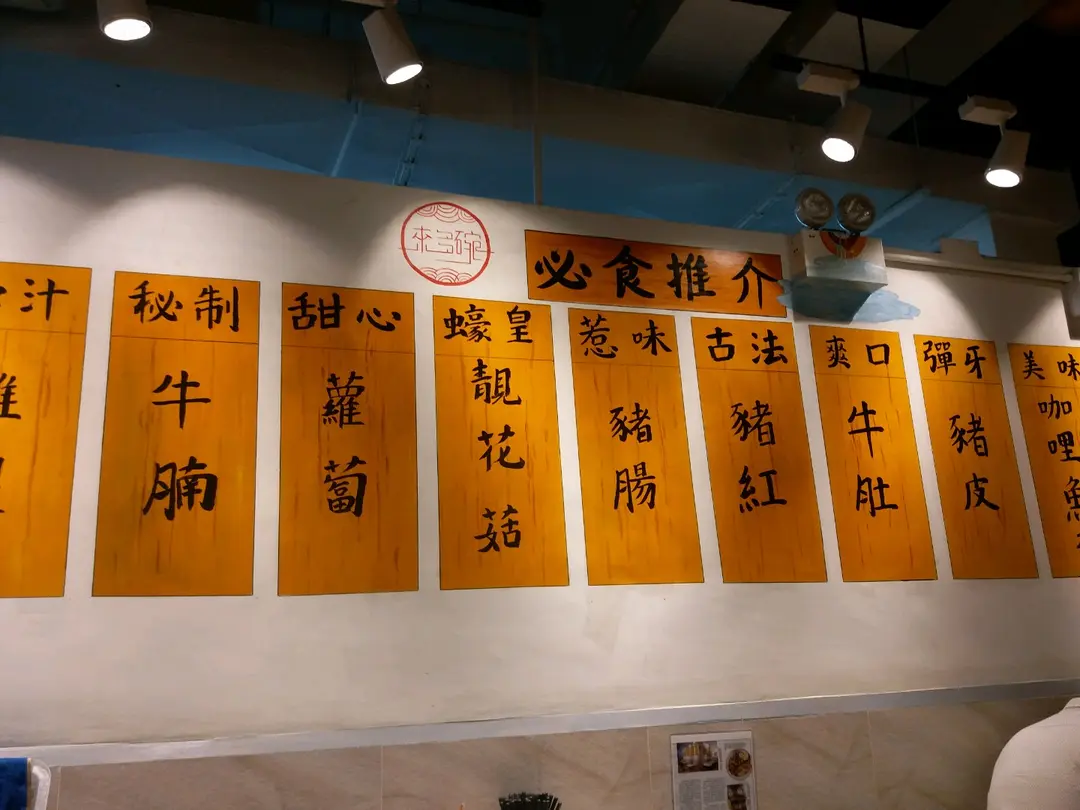 來多碗
必食推介
汁
秘制
牛腩
甜心
蘿蔔
蠔皇
靚花菇
惹味
豬腸
古法
豬紅
爽口
牛肚
彈牙
豬皮
美味
咖哩魚